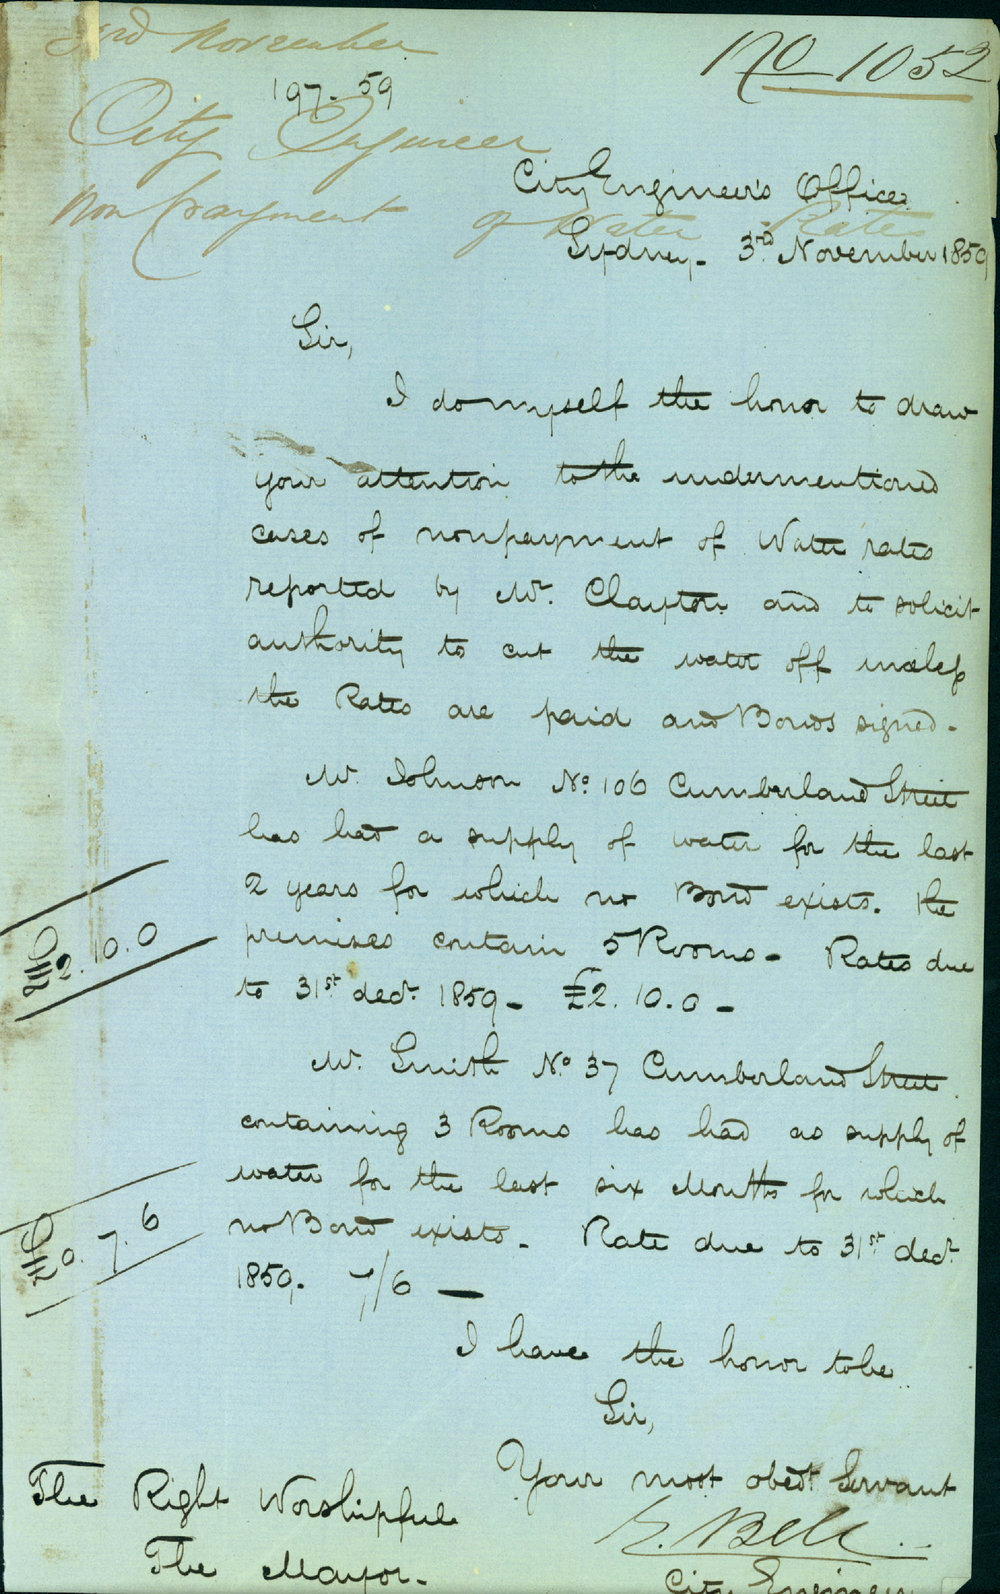 3rd November
No 1052
197. 59
City Engineer
Non payment of Water Rates
City Engineer's Office
Sydney. 3rd November 1859
Sir,
I do myself the honor to draw
your attention to the undermentioned
cases of nonpayment of Water rates
reported by Mr. Clayton and to solicit
authority to cut the water off unless
the Rates are paid and Bonds signed.
Mr Johnson No. 106 Cumberland Street
has had a supply of water for the last
2 years for which no Bond exists. The
premises contain 5 Rooms - Rates due
to 31st decr. 1859 - £2.10.0 -
2.10.0
Mr. Smith No. 37 Cumberland Street
containing 3 Rooms has had as supply of
water for the last six Months for which
no Bond exists. Rate due to 31st decr
1859. 7/6 —
0.7.6
I have the honor to be
Sir,
Your most obedt Servant
E. Bell
City Engineer
The Right Worshipful
The Mayor.